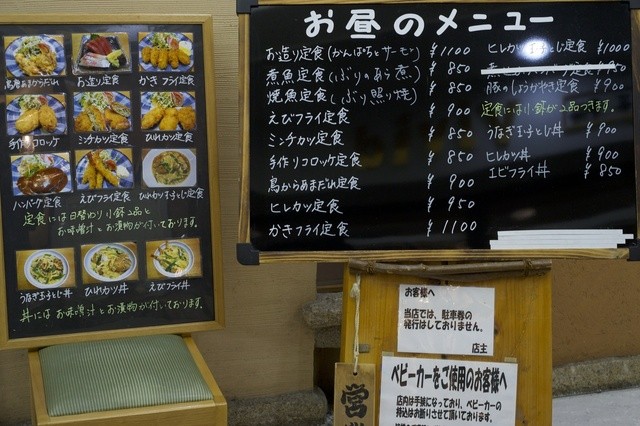 鳥唐あまからだれ
お造り定食
かきフライ定食
手作りコロッケ
ミンチカツ定食
ひれカツ定食
ハンバーグ定食
えびフライ定食
ひれカツ玉子とじ定食
定食には日替わり小鉢2品と
お味噌汁とお漬物が付いております。
うなぎ玉子とじ丼
ひれカツ丼
えびフライ丼
丼にはお味噌汁とお漬物が付いております。
お昼のメニュー
お造り定食(かんぱちとサーモン) ¥1100
煮魚定食(ぶりのあら煮) ¥850
焼魚定食(ぶり照り焼) ¥850
えびフライ定食 ¥900
ミンチカツ定食 ¥850
手作りコロッケ定食 ¥850
鳥からあまだれ定食 ¥900
ヒレカツ定食 ¥950
かきフライ定食 ¥1100
ヒレカツ玉子とじ定食 ¥1000
豚のしょうがやき定食 ¥900
定食には小鉢が2品つきます。
うなぎ玉子とじ丼 ¥900
ヒレカツ丼 ¥900
エビフライ丼 ¥850
お客様へ
当店では、駐車券の
発行はしておりません。
店主
ベビーカーをご使用のお客様へ
店内は手狭になっており、ベビーカーの
持込はお断りさせて頂いております。
営業